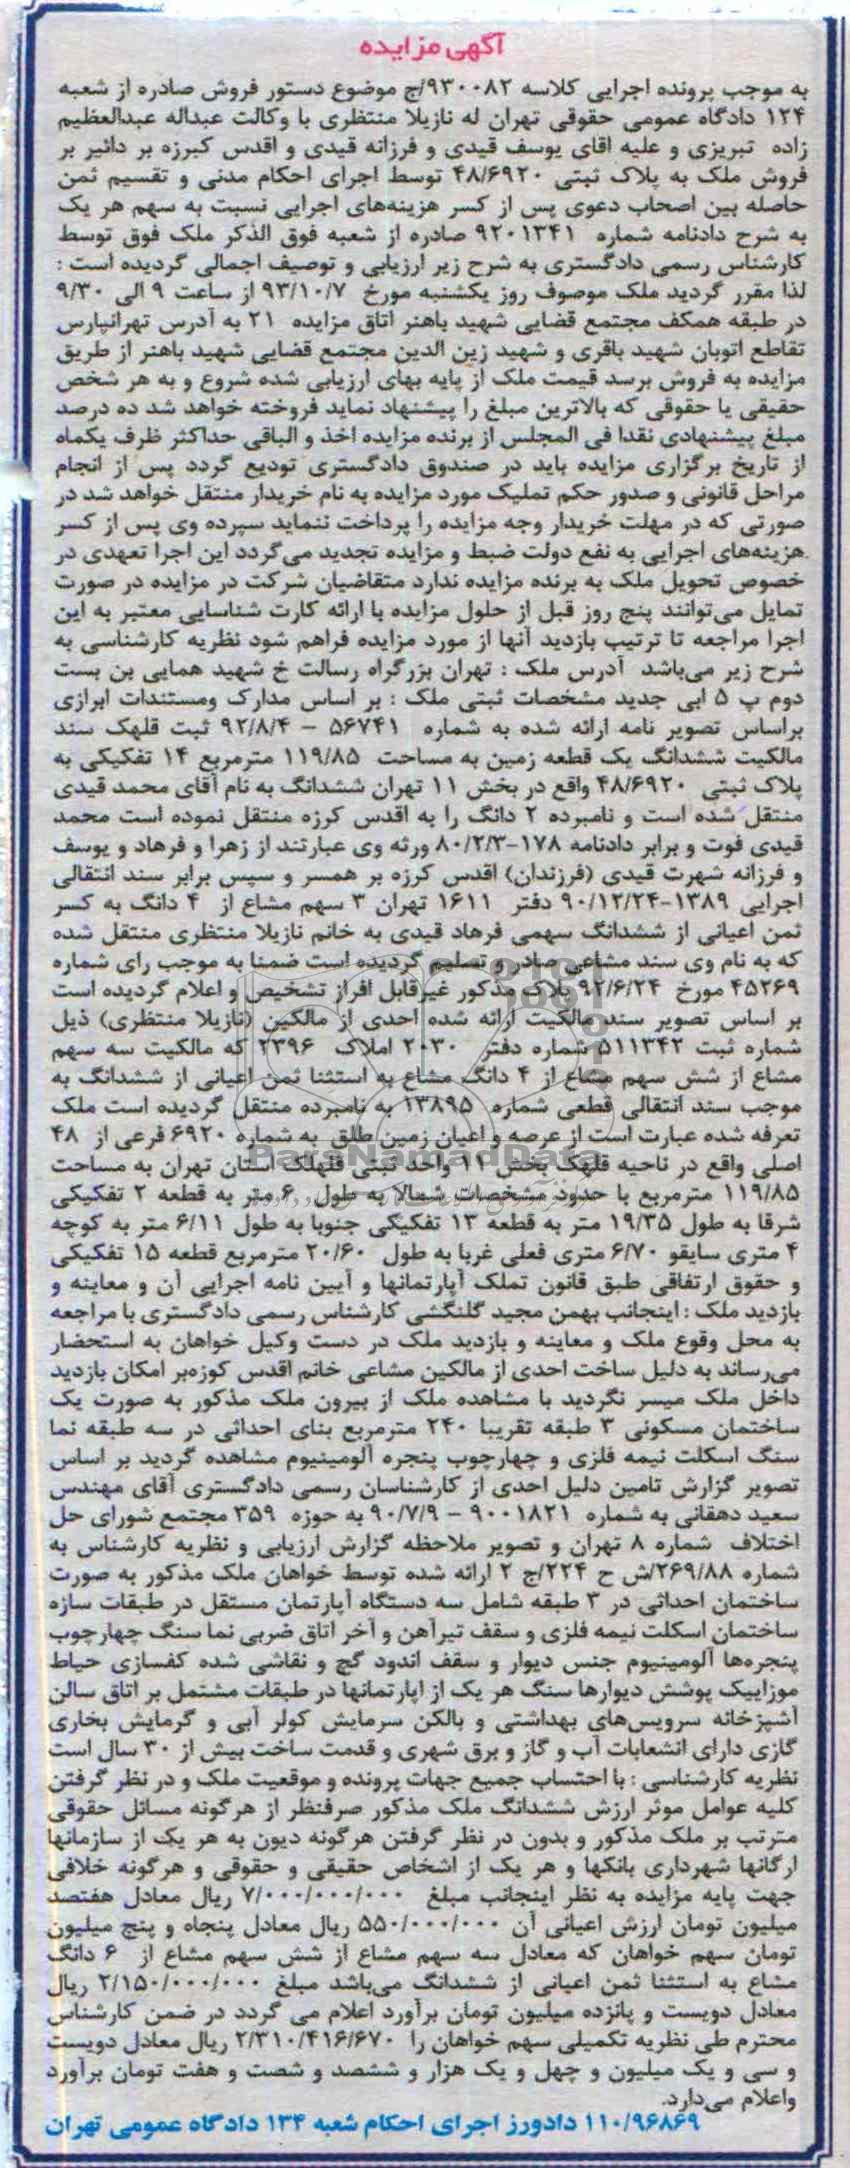 آگهی مزایده
به موجب پرونده اجرایی کلاسه ۹۳۰۰۸۲/ج موضوع دستور فروش صادره از شعبه
۱۲۴ دادگاه عمومی حقوقی تهران له نازیلا منتظری با وکالت عبداله عبدالعظیم
زاده تبریزی و علیه اقای یوسف قیدی و فرزانه قیدی و اقدس کبرزه بر دائیر بر
فروش ملک به پلاک ثبتی ۴۸/۶۹۲۰ توسط اجرای احکام مدنی و تقسیم ثمن
حاصله بین اصحاب دعوی پس از کسر هزینه‌های اجرایی نسبت به سهم هر یک
به شرح دادنامه شماره ۹۲۰۱۳۴۱ صادره از شعبه فوق الذکر ملک فوق توسط
کارشناس رسمی دادگستری به شرح زیر ارزیابی و توصیف اجمالی گردیده است :
لذا مقرر گردید ملک موصوف روز یکشنبه مورخ ۹۳/۱۰/۷ از ساعت ۹ الی ۹/۳۰
در طبقه همکف مجتمع قضایی شهید باهنر اتاق مزایده ۲۱ به آدرس تهرانپارس
تقاطع اتوبان شهید باقری و شهید زین الدین مجتمع قضایی شهید باهنر از طریق
مزایده به فروش برسد قیمت ملک از پایه بهای ارزیابی شده شروع و به هر شخص
حقیقی یا حقوقی که بالاترین مبلغ را پیشنهاد نماید فروخته خواهد شد ده درصد
مبلغ پیشنهادی نقدا فی المجلس از برنده مزایده اخذ و الباقی حداکثر ظرف یکماه
از تاریخ برگزاری مزایده باید در صندوق دادگستری تودیع گردد پس از انجام
مراحل قانونی و صدور حکم تملیک مورد مزایده به نام خریدار منتقل خواهد شد در
صورتی که در مهلت خریدار وجه مزایده را پرداخت ننماید سپرده وی پس از کسر
هزینه‌های اجرایی به نفع دولت ضبط و مزایده تجدید می‌گردد این اجرا تعهدی در
خصوص تحویل ملک به برنده مزایده ندارد متقاضیان شرکت در مزایده در صورت
تمایل می‌توانند پنج روز قبل از حلول مزایده با ارائه کارت شناسایی معتبر به این
اجرا مراجعه تا ترتیب بازدید آنها از مورد مزایده فراهم شود نظریه کارشناسی به
شرح زیر می‌باشد آدرس ملک : تهران بزرگراه رسالت خ شهید همایی بن بست
دوم پ ۵ ابی جدید مشخصات ثبتی ملک : بر اساس مدارک ومستندات ابرازی
براساس تصویر نامه ارائه شده به شماره ۵۶۷۴۱ - ۹۲/۸/۴ ثبت قلهک سند
مالکیت ششدانگ یک قطعه زمین به مساحت ۱۱۹/۸۵ مترمربع ۱۴ تفکیکی به
پلاک ثبتی ۴۸/۶۹۲۰ واقع در بخش ۱۱ تهران ششدانگ به نام آقای محمد قیدی
منتقل شده است و نامبرده ۲ دانگ را به اقدس کرزه منتقل نموده است محمد
قیدی فوت و برابر دادنامه ۱۷۸-۸۰/۲/۳ ورثه وی عبارتند از زهرا و فرهاد و یوسف
و فرزانه شهرت قیدی (فرزندان) اقدس کرزه بر همسر و سپس برابر سند انتقالی
اجرایی ۱۳۸۹-۹۰/۱۲/۲۴ دفتر ۱۶۱۱ تهران ۳ سهم مشاع از ۴ دانگ به کسر
ثمن اعیانی از ششدانگ سهمی فرهاد قیدی به خانم نازیلا منتظری منتقل شده
که به نام وی سند مشاعی صادر و تسلیم گردیده است ضمنا به موجب رای شماره
۴۵۲۶۹ مورخ ۹۲/۶/۲۴ پلاک مذکور غیرقابل افراز تشخیص و اعلام گردیده است
بر اساس تصویر سند مالکیت ارائه شده احدی از مالکین (نازیلا منتظری) ذیل
شماره ثبت ۵۱۱۳۴۲ شماره دفتر ۲۰۳۰ املاک ۲۳۹۶ که مالکیت سه سهم
مشاع از شش سهم مشاع از ۴ دانگ مشاع به استثنا ثمن اعیانی از ششدانگ به
موجب سند انتقالی قطعی شماره ۱۳۸۹۵ به نامبرده منتقل گردیده است ملک
تعرفه شده عبارت است از عرصه و اعیان زمین طلق به شماره ۶۹۲۰ فرعی از ۴۸
اصلی واقع در ناحیه قلهک بخش ۱۱ واحد ثبتی قلهلک استان تهران به مساحت
ParsNamadData
۱۱۹/۸۵ مترمربع با حدود مشخصات شمالا به طول ۶ متر به قطعه ۲ تفکیکی
شرقا به طول ۱۹/۳۵ متر به قطعه ۱۳ تفکیکی جنوبا به طول ۶/۱۱ متر به کوچه
۴ متری سابقو ۶/۷۰ متری فعلی غربا به طول ۲۰/۶۰ مترمربع قطعه ۱۵ تفکیکی
و حقوق ارتفاقی طبق قانون تملک آپارتمانها و آیین نامه اجرایی آن و معاینه و
بازدید ملک : اینجانب بهمن مجید گلنگشی کارشناس رسمی دادگستری با مراجعه
به محل وقوع ملک و معاینه و بازدید ملک در دست وکیل خواهان به استحضار
می‌رساند به دلیل ساخت احدی از مالکین مشاعی خانم اقدس کوزه‌بر امکان بازدید
داخل ملک میسر نگردید با مشاهده ملک از بیرون ملک مذکور به صورت یک
ساختمان مسکونی ۳ طبقه تقریبا ۲۴۰ مترمربع بنای احداثی در سه طبقه نما
سنگ اسکلت نیمه فلزی و چهارچوب پنجره آلومینیوم مشاهده گردید بر اساس
تصویر گزارش تامین دلیل احدی از کارشناسان رسمی دادگستری آقای مهندس
سعید دهقانی به شماره ۹۰۰۱۸۲۱ - ۹۰/۷/۹ به حوزه ۳۵۹ مجتمع شورای حل
اختلاف شماره ۸ تهران و تصویر ملاحظه گزارش ارزیابی و نظریه کارشناس به
شماره ۲۶۹/۸۸/ش ح ۲۲۴/ج ۲ ارائه شده توسط خواهان ملک مذکور به صورت
ساختمان احداثی در ۳ طبقه شامل سه دستگاه آپارتمان مستقل در طبقات سازه
ساختمان اسکلت نیمه فلزی و سقف تیرآهن و آخر اتاق ضربی نما سنگ چهارچوب
پنجره‌ها آلومینیوم جنس دیوار و سقف اندود گچ و نقاشی شده کفسازی حیاط
موزاییک پوشش دیوارها سنگ هر یک از اپارتمانها در طبقات مشتمل بر اتاق سالن
آشپزخانه سرویس‌های بهداشتی و بالکن سرمایش کولر آبی و گرمایش بخاری
گازی دارای انشعابات آب و گاز و برق شهری و قدمت ساخت بیش از ۳۰ سال است
نظریه کارشناسی : با احتساب جمیع جهات پرونده و موقعیت ملک و در نظر گرفتن
کلیه عوامل موثر ارزش ششدانگ ملک مذکور صرفنظر از هرگونه مسائل حقوقی
مترتب بر ملک مذکور و بدون در نظر گرفتن هرگونه دیون به هر یک از سازمانها
ارگانها شهرداری بانکها و هر یک از اشخاص حقیقی و حقوقی و هرگونه خلافی
جهت پایه مزایده به نظر اینجانب مبلغ ۷/۰۰۰/۰۰۰/۰۰۰ ریال معادل هفتصد
میلیون تومان ارزش اعیانی آن ۵۵۰/۰۰۰/۰۰۰ ریال معادل پنجاه و پنج میلیون
تومان سهم خواهان که معادل سه سهم مشاع از شش سهم مشاع از ۶ دانگ
مشاع به استثنا ثمن اعیانی از ششدانگ می‌باشد مبلغ ۲/۱۵۰/۰۰۰/۰۰۰ ریال
معادل دویست و پانزده میلیون تومان برآورد اعلام می گردد در ضمن کارشناس
محترم طی نظریه تکمیلی سهم خواهان را ۲/۳۱۰/۴۱۶/۶۷۰ ریال معادل دویست
و سی و یک میلیون و چهل و یک هزار و ششصد و شصت و هفت تومان برآورد
واعلام می‌دارد.
۱۱۰/۹۶۸۶۹ دادورز اجرای احکام شعبه ۱۳۴ دادگاه عمومی تهران